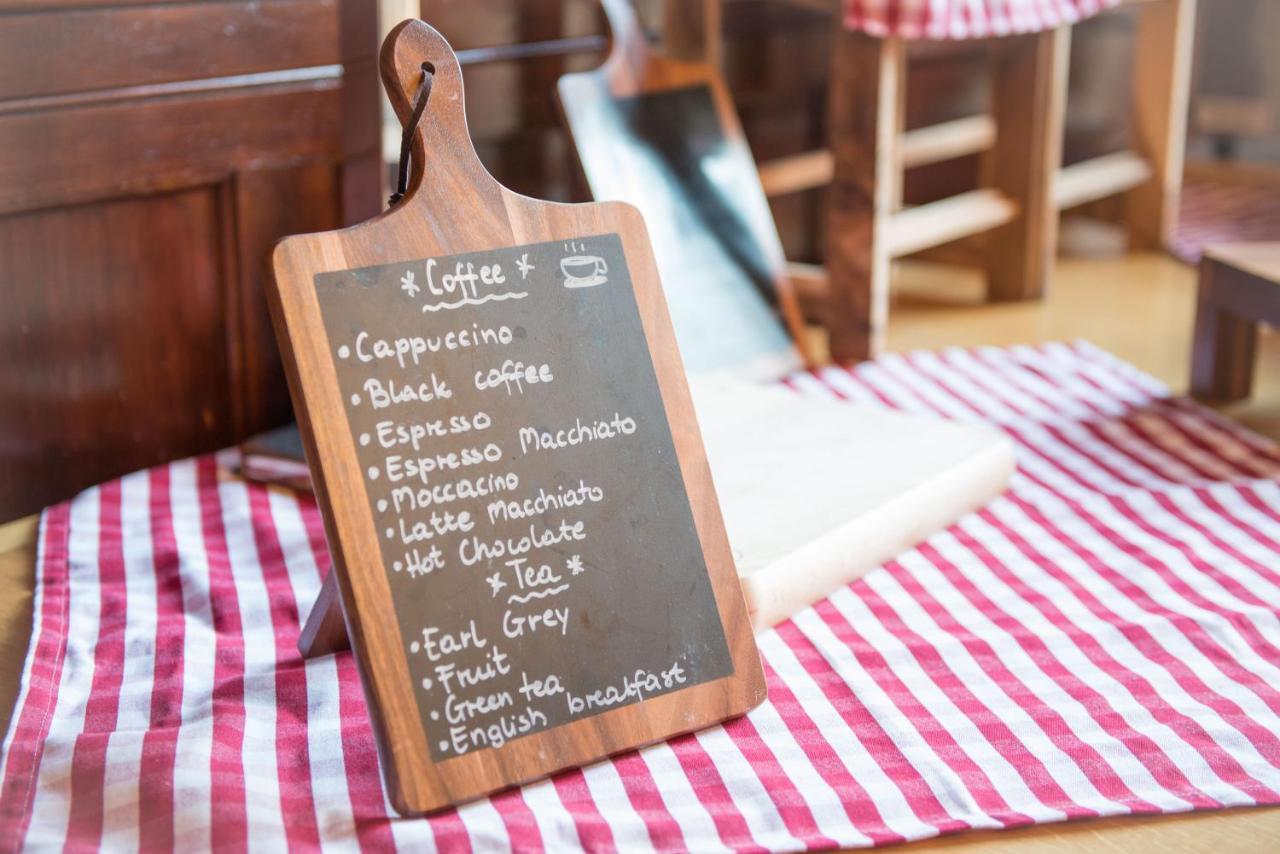 * Coffee *
• Cappuccino
• Black coffee
• Espresso
• Espresso Macchiato
• Moccacino
• Latte Macchiato
• Hot Chocolate
* Tea *
• Earl Grey
• Fruit
• Green tea
• English breakfast